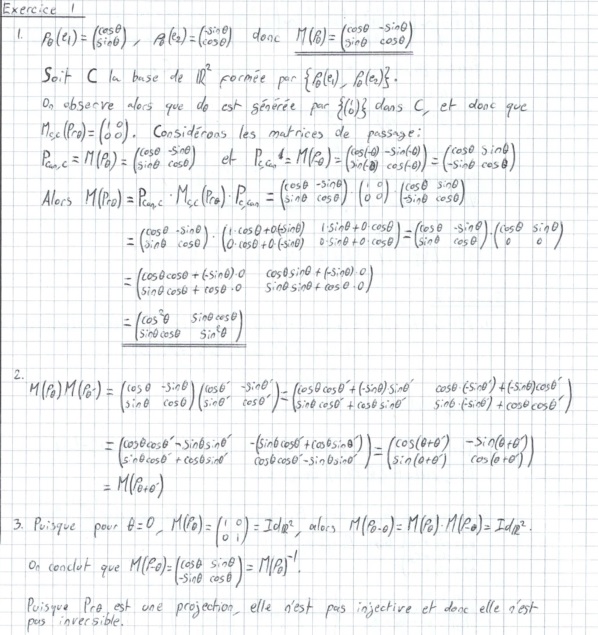 Exercice 1
1. ρθ(e₁) = (cosθ; sinθ), ρθ(e₂) = (-sinθ; cosθ) donc M(ρθ) = (cosθ -sinθ; sinθ cosθ)
Soit C la base de ℝ² formée par {ρθ(e₁), ρθ(e₂)}.
On observe alors que dθ est générée par {(1; 0)} dans C, et donc que
M_C,C(Prθ) = (1 0; 0 0). Considérons les matrices de passage:
P_can,C = M(ρθ) = (cosθ -sinθ; sinθ cosθ) et P_C,can = M(ρ-θ) = (cos(-θ) -sin(-θ); sin(-θ) cos(-θ)) = (cosθ sinθ; -sinθ cosθ)
Alors M(Prθ) = P_can,C · M_C,C(Prθ) · P_C,can = (cosθ -sinθ; sinθ cosθ) · (1 0; 0 0) · (cosθ sinθ; -sinθ cosθ)
= (cosθ -sinθ; sinθ cosθ) · (1·cosθ+0(-sinθ) 1·sinθ+0·cosθ; 0·cosθ+0·(-sinθ) 0·sinθ+0·cosθ) = (cosθ -sinθ; sinθ cosθ) · (cosθ sinθ; 0 0)
= (cosθcosθ + (-sinθ)·0 cosθsinθ + (-sinθ)·0; sinθcosθ + cosθ·0 sinθsinθ + cosθ·0)
= (cos²θ sinθcosθ; sinθcosθ sin²θ)
2. M(ρθ)M(ρθ') = (cosθ -sinθ; sinθ cosθ)(cosθ' -sinθ'; sinθ' cosθ') = (cosθcosθ' + (-sinθ)sinθ' cosθ·(-sinθ') + (-sinθ)cosθ'; sinθcosθ' + cosθsinθ' sinθ·(-sinθ') + cosθcosθ')
= (cosθcosθ' - sinθsinθ' -(sinθcosθ' + cosθsinθ'); sinθcosθ' + cosθsinθ' cosθcosθ' - sinθsinθ') = (cos(θ+θ') -sin(θ+θ'); sin(θ+θ') cos(θ+θ'))
= M(ρθ+θ')
3. Puisque pour θ=0, M(ρθ) = (1 0; 0 1) = Idℝ², alors M(ρθ-θ) = M(ρθ)·M(ρ-θ) = Idℝ².
On conclut que M(ρ-θ) = (cosθ sinθ; -sinθ cosθ) = M(ρθ)⁻¹.
Puisque Prθ est une projection, elle n'est pas injective et donc elle n'est
pas inversible.